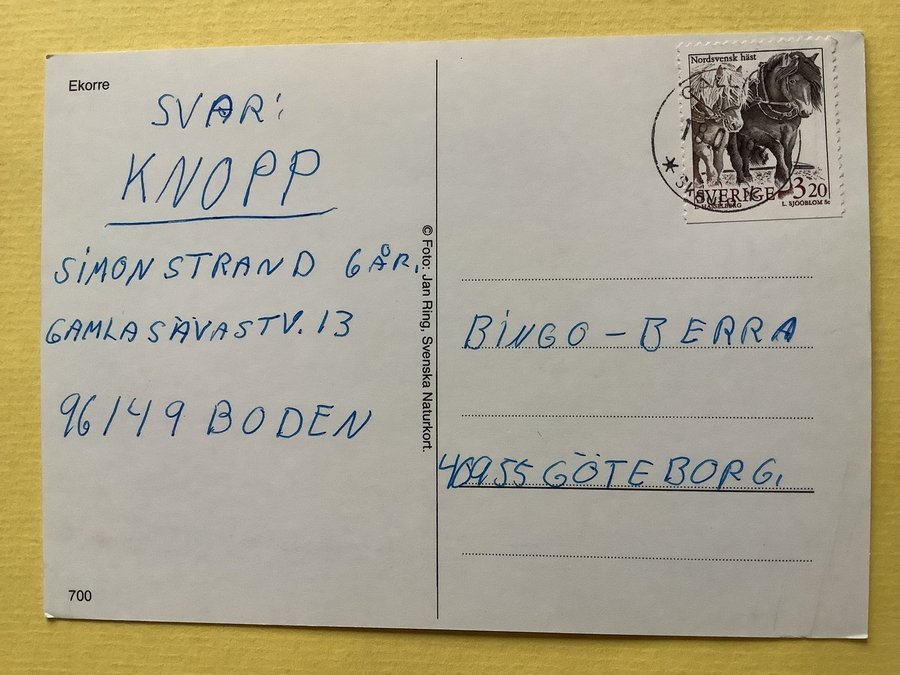 Ekorre
SVAR:
KNOPP
SIMON STRAND 6 ÅR.
GAMLA SÄVASTV. 13
96149 BODEN
700
© Foto: Jan Ring, Svenska Naturkort.
Nordsvensk häst
SVERIGE 3 20
L. SJÖÖBLOM Sc
BINGO-BERRA
40955 GÖTEBORG.